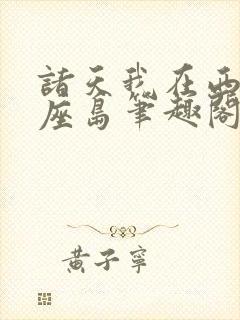 諸天我在西
座島筆趣閣
黃子寧